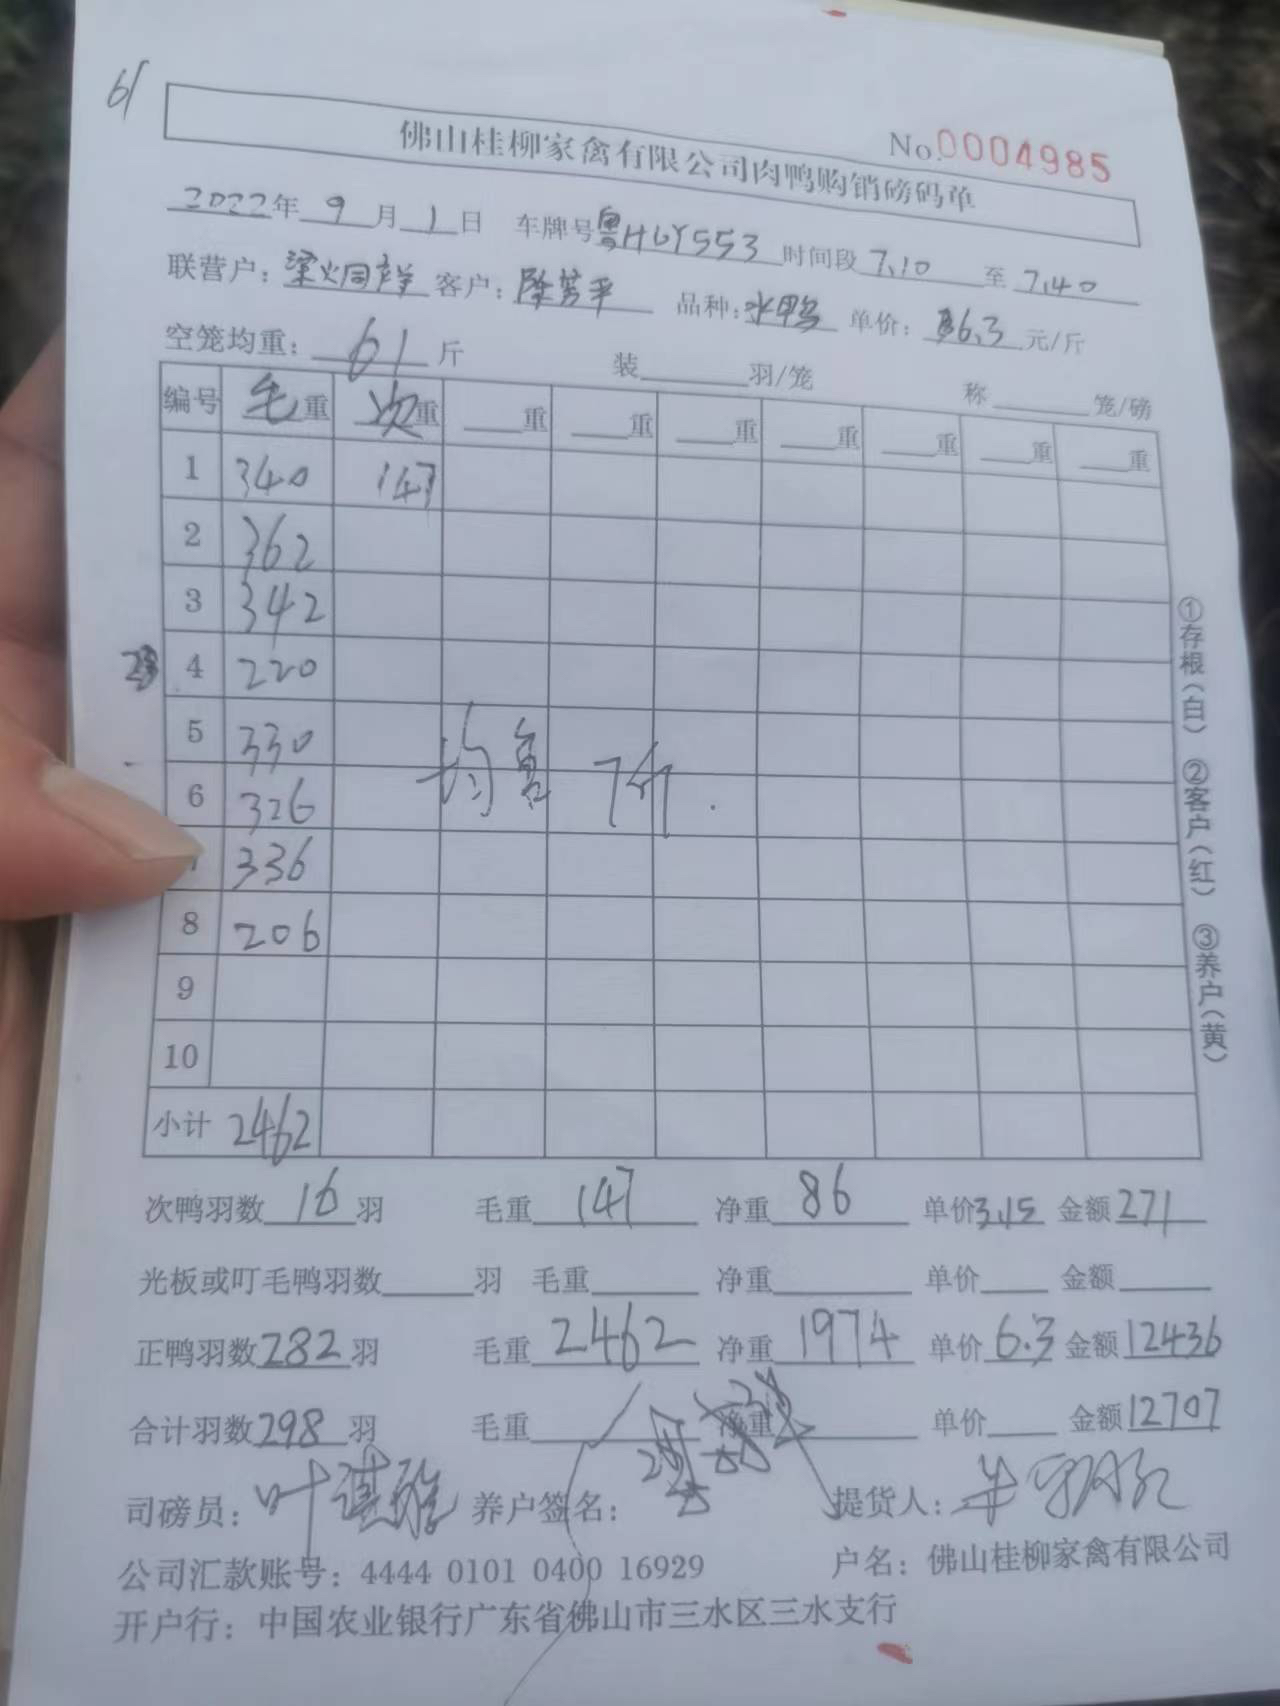 61
No.0004985
佛山桂柳家禽有限公司肉鸭购销磅码单
2022年 9 月 1 日 车牌号粤HGY553 时间段 7.10 至 7.40
联营户: 梁炯祥 客户: 陈芳平 品种: 水鸭 单价: 6.3 元/斤
空笼均重: 61 斤 装 羽/笼 称 笼/磅
编号 毛重 次重 重 重 重 重 重 重 重
1 340 147
2 362
3 342
4 220
5 330
6 326
均重 7斤.
336
8 206
9
10
小计 2462
次鸭羽数 16 羽 毛重 147 净重 86 单价 3.15 金额 271
光板或叮毛鸭羽数 羽 毛重 净重 单价 金额
正鸭羽数 282 羽 毛重 2462 净重 1974 单价 6.3 金额 12436
合计羽数 298 羽 毛重 净重 单价 金额 12707
司磅员: 叶 养户签名: 提货人:
公司汇款账号: 4444 0101 0400 16929 户名: 佛山桂柳家禽有限公司
开户行: 中国农业银行广东省佛山市三水区三水支行
①存根(白) ②客户(红) ③养户(黄)